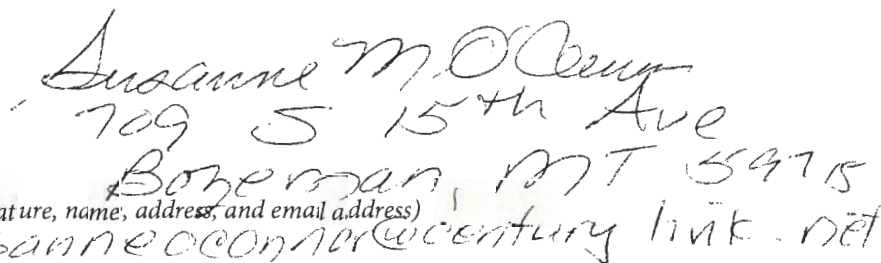 Susanne M. O'Connor
709 S 15th Ave
Bozeman, MT 59715
ature, name, address, and email address)
sanneoconnor@centurylink.net